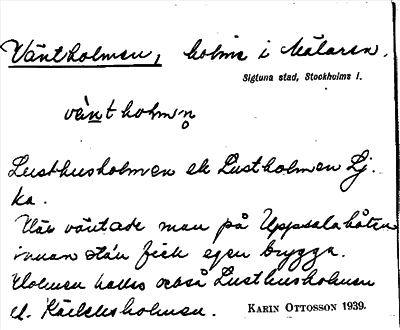 Väntholmen, holme i Mälaren.
Sigtuna stad, Stockholms l.
väntholmen
Lusthusholmen el. Lustholmen Lj.
ka.
Här väntade man på Uppsalabåten
innan stan fick egen brygga.
Holmen kallas också Lusthusholmen
el. Kärleksholmen. KARIN OTTOSSON 1939.